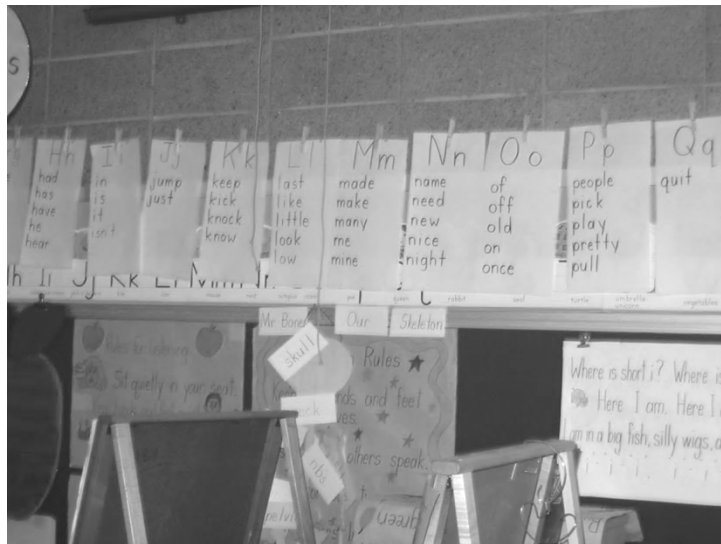 s
e
Hh
had
has
have
he
hear
Ii
in
is
it
isn't
Jj
jump
just
Kk
keep
kick
knock
know
Ll
last
like
little
look
low
Mm
made
make
many
me
mine
Nn
name
need
new
nice
night
Oo
of
off
old
on
once
Pp
people
pick
play
pretty
pull
Qq
quit
Ii Jj Kk Ll Mm
rabbit
turtle
umbrella
vegetables
Mr Bone
Our
Skeleton
skull
Rules for listening
Sit quietly in your seat.
Rules
and feel
others speak.
ribs
pelvis
green
Where is short i? Where is
Here I am. Here I
I am in a big fish, silly wigs, a
i i i i i
R